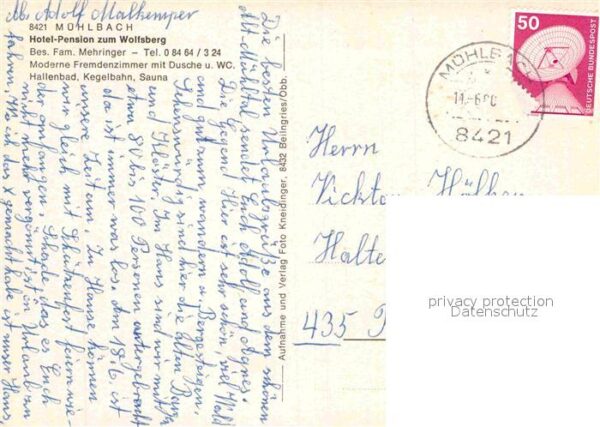 Abs. Adolf Malkemper
8421 MÜHLBACH
Hotel-Pension zum Wolfsberg
Bes. Fam. Mehringer – Tel. 0 84 64 / 3 24
Moderne Fremdenzimmer mit Dusche u. WC.
Hallenbad, Kegelbahn, Sauna
Die besten Urlaubsgrüße aus dem schönen
Altmühltal sendet Euch Adolf und Agnes.
Die Gegend Hier ist sehr schön, viel Wald
und gut zum wandern u. Bergsteigen.
Sehenswürdig sind hier die alten
und Klöster. Im Haus sind wir mit
etwa 80 bis 100 Personen untergebracht
da ist immer was los. Am 18.6. ist
unsere Zeit um, Zu Hause können
wir gleich mit Schützenfest feiern wie-
der anfangen. Schade das es Euch
nicht mehr vergönnt ist in Urlaub zu
fahren, Wo ich das X gemacht habe ist unser Haus.
Aufnahme und Verlag Foto Kneidinger, 8432 Beilngries/Obb.
50
DEUTSCHE BUNDESPOST
MÜHLBACH
8421
Herrn
Halte
435
privacy protection
Datenschutz